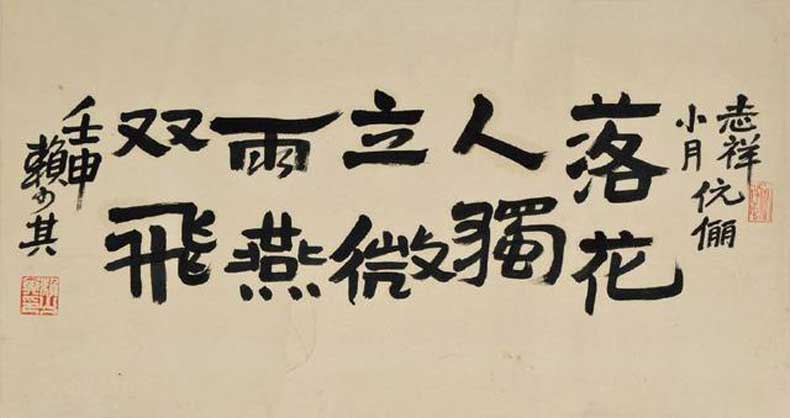 志祥
小月伉俪
落花
人獨
立微
雨燕
双飛
壬申
賴少其